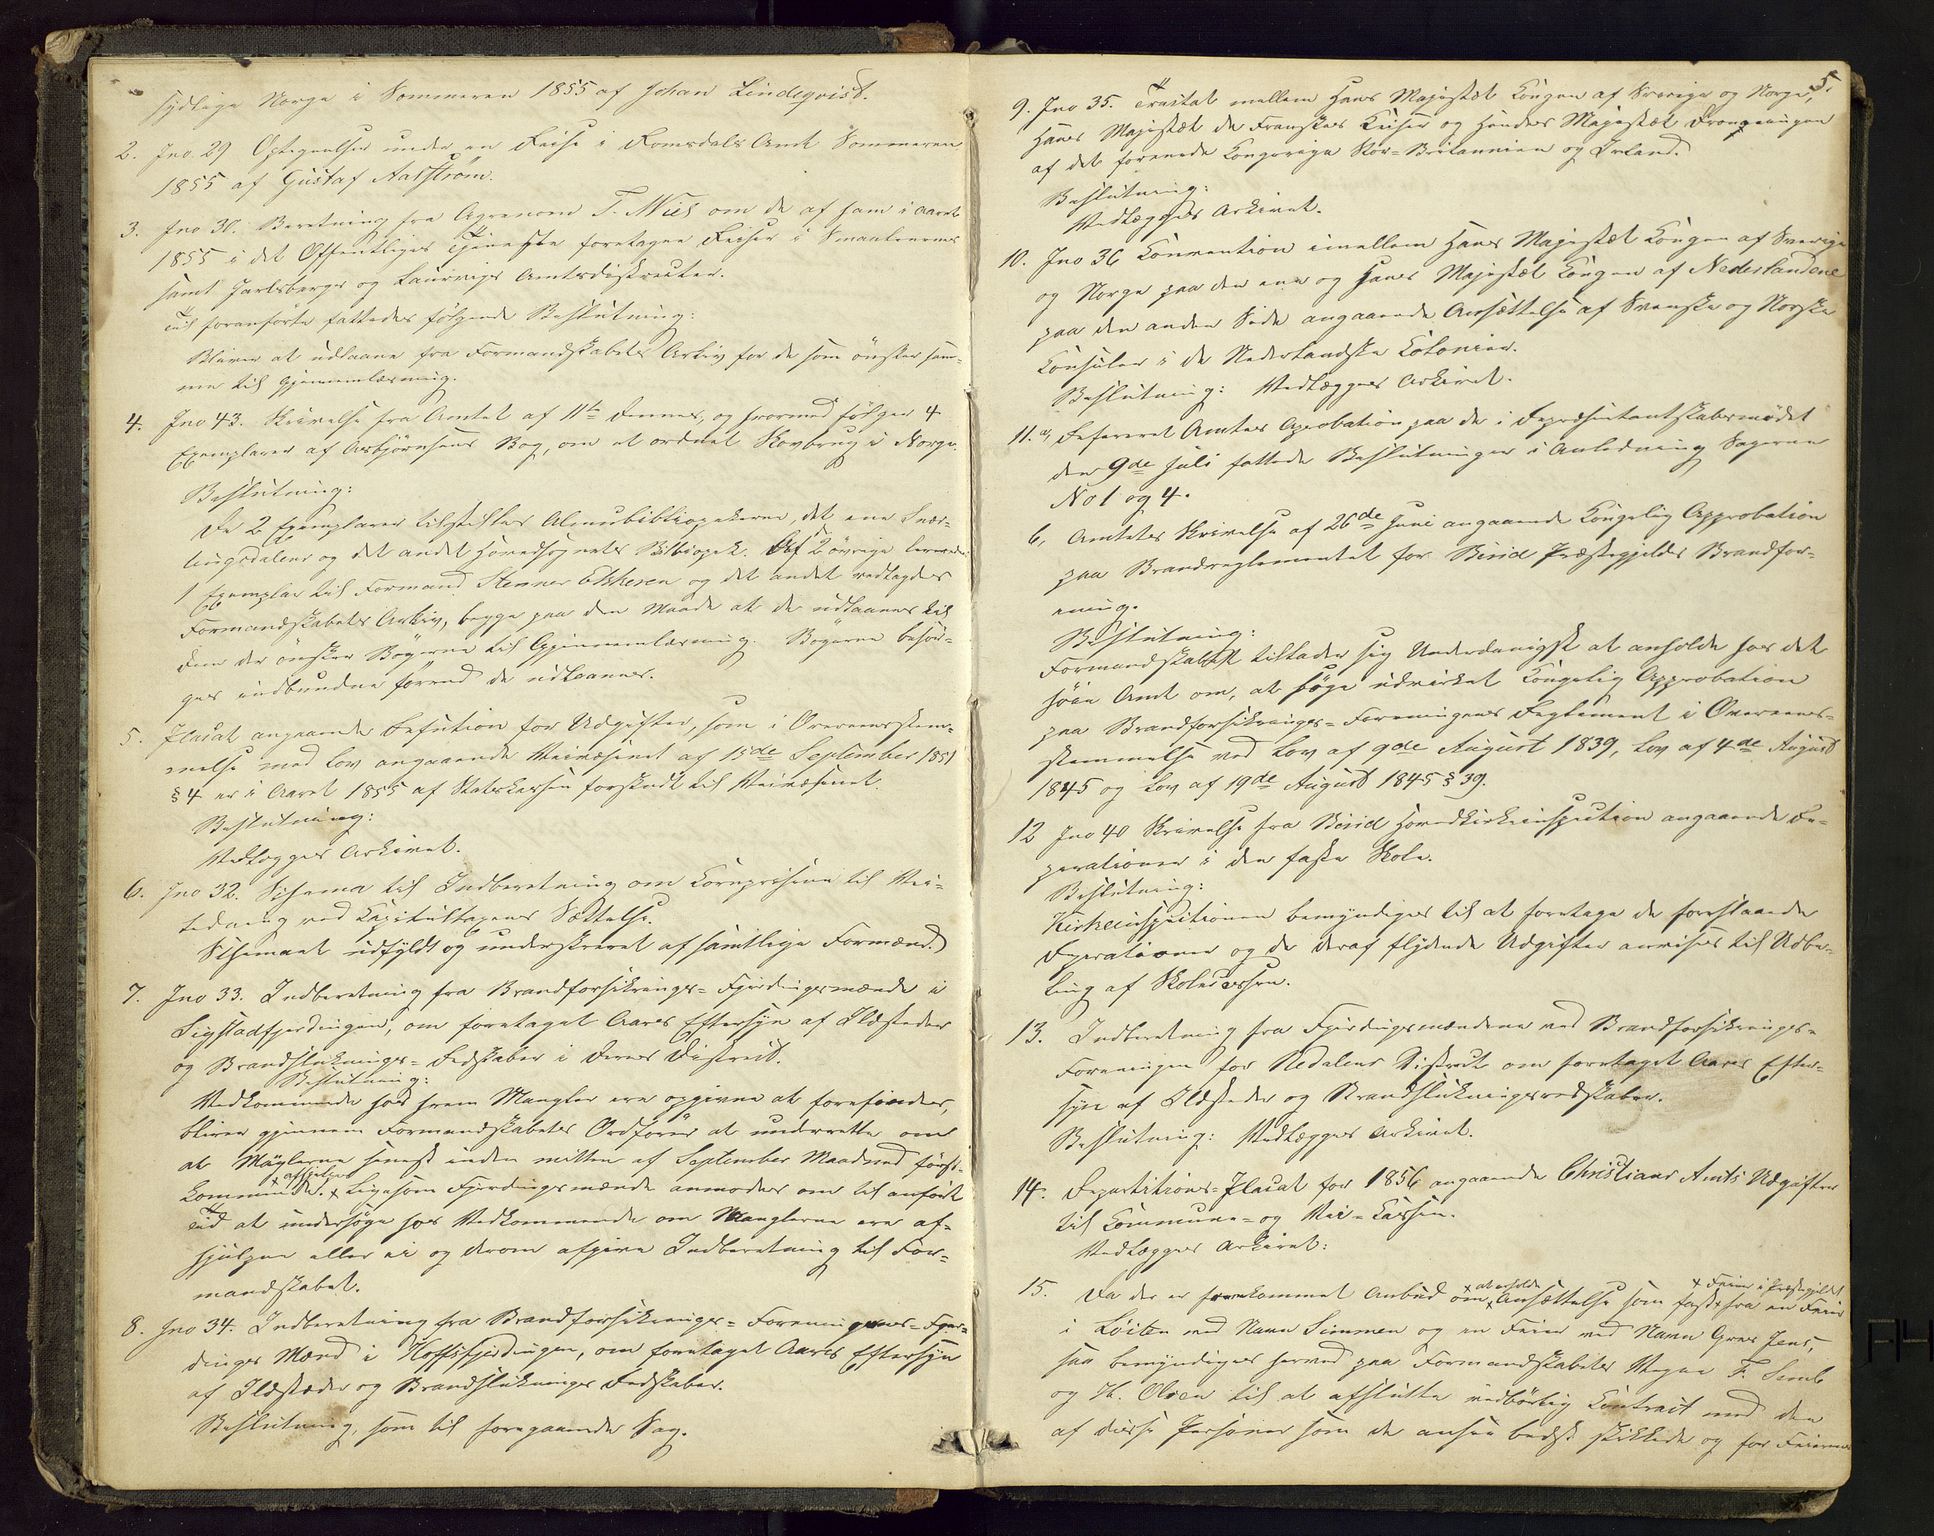 sydlige Norge i Sommeren 1855 af Johan Lindeqvist.
2. Jno. 29 Optegnelser under en Reise i Romsdals Amt Sommeren
1855 af Gustaf Aatstrøm.
3. Jno 30. Beretning fra Agronom T. Wiel om de af ham i Aaret
1855 i det Offentliges Tjeneste foretagne Reiser i Smaalenenes
samt Jarlsbergs og Laurvigs Amtsdistricter.
Til foranførte fattedes følgende Beslutning:
Bliver at udlaane fra Formandskabets Arkiv for de som ønsker sam-
me til Gjennemlæsning.
4. Jno 43. Skrivelse fra Amtet af 11te dennes, og hvormed følger 4
Exemplarer af Asbjørnsens Bog, om et ordnet Skovbrug i Norge.
Beslutning:
De 2 Exemplarer tilstilles Almuebibliothekerne, det ene Snær-
tingdalens og det andet Hovedsognets Bibliothek. Af 2 øvrige leveredes
1 Exemplar til Formand Stenner Ekkeren og det andet vedlagdes
Formandskabets Arkiv, begge paa den Maade at de udlaanes til
dem der ønsker Bøgerne til Gjennemlæsning. Bøgerne besør-
ges indbundne førend de udlaanes.
5. Placat angaaende Refution for Udgifter, som i Overensstem-
melse med Lov angaaende Veivæsenet af 15de September 1851
§ 4 er i Aaret 1855 af Statskassen forskudt til Veivæsenet.
Beslutning:
Vedlægges Arkivet.
6. Jno 32. Schema til Indberetning om Kornpriserne til Vei-
ledning ved Kapitulstaxens Sættelse.
Schemaet udfyldt og underskrevet af samtlige Formænd.
7. Jno 33. Indberetning fra Brandforsikrings-Fjerdingsmænde i
Sigstadfjerdingen, om foretaget Aars Eftersyn af Ildsteder
og Brandsluknings-Redskaber i deres District.
Beslutning:
Vedkommende hos hvem Mangler ere opgivne at forefindes,
bliver gjennem Formandskabets Ordfører at underrette om
at Manglerne senest inden mitten af September Maaned først-
kommende × afhjelpes × Ligesom Fjerdingsmænde anmodes om til anført
Tid at undersøge hos Vedkommende om Manglerne ere af-
hjulpne eller ei og derom afgive Indberetning til For-
mandskabet.
8. Jno 34. Indberetning fra Brandforsikrings-Foreningens-Fjer-
dings Mænd i Hoffsfjerdingen, om foretaget Aars Eftersyn
af Ildsteder og Brandsluknings Redskaber.
Beslutning, som til foregaaende Sag.
5.
9. Jno 35. Tractat mellem Hans Majestæt Kongen af Sverige og Norge,
Hans Majestæt de Franskes Keiser og Hendes Majestæt Dronningen
af det forenede Kongerige Stor-Britannien og Irland.
Beslutning:
Vedlægges Arkivet.
10. Jno 36 Convention imellem Hans Majestæt Kongen af Sverige
og Norge paa den ene og Hans Majestæt Kongen af Nederlandene
paa den anden Side angaaende Ansættelse af Svenske og Norske
Konsuler i de Nederlandske Kolonier.
Beslutning: Vedlægges Arkivet.
11. a, Refereret Amtets Aprobation paa de i Repræsentantskabsmødet
den 9de Juli fattede Beslutninger i Anledning Sagerne
No 1 og 4.
b, Amtets Skrivelse af 26de Juni angaaende Kongelig Approbation
paa Brandreglementet for Biriid Præstegjelds Brandfor-
ening.
Beslutning:
Formandskabet tillader sig Underdanigst at anholde hos det
høie Amt om, at søge udvirket Kongelig Approbation
paa Brandforsikrings-Foreningens Reglement i Overens-
stemmelse ved Lov af 9de August 1839, Lov af 4de August
1845 og Lov af 19de August 1845 § 39.
12 Jno 40 Skrivelse fra Biriid Hovedkirkeinspection angaaende Re-
parationer i den faste Skole.
Beslutning:
Kirkeinspectionen bemyndiges til at foretage de foreslaaede
Reparationer og de deraf flydende Udgifter anvises til Udbe-
ling af Skolecassen.
13. Indberetning fra Fjerdingsmændene ved Brandforsikrings-
Foreningen for Nedalens District om foretaget Aars Efter-
syn af Ildsteder og Brandslukningsredskaber.
Beslutning: Vedlægges Arkivet.
14. Repartitions-Placat for 1856 angaaende Christians Amts Udgifter
til Kommune- og Vei-Kassen.
Vedlægges Arkivet:
15. Da der er fremkommet Anbud om × at erholde × Ansættelse som fast × Feier i Præstegjeldet × fra en Feier
i Løiten ved Navn Simmen og en Feier ved Navn Gves Jens,
saa bemyndiges herved paa Formandskabets Vegne F. Semb
og H. Olsen til at afslutte vedbørlig Kontract med den
af disse Personer som de ansee bedst skikkede og for Feiernes